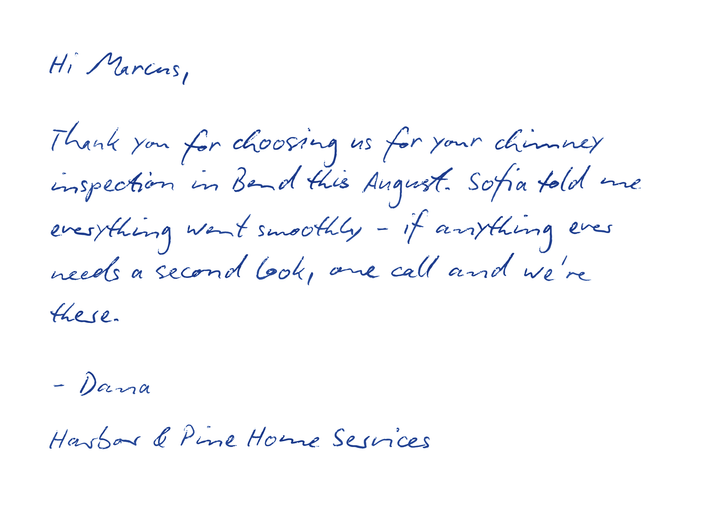 Hi Marcus,
Thank you for choosing us for your chimney
inspection in Bend this August. Sofia told me
everything went smoothly – if anything ever
needs a second look, one call and we're
there.
– Dana
Harbor & Pine Home Services